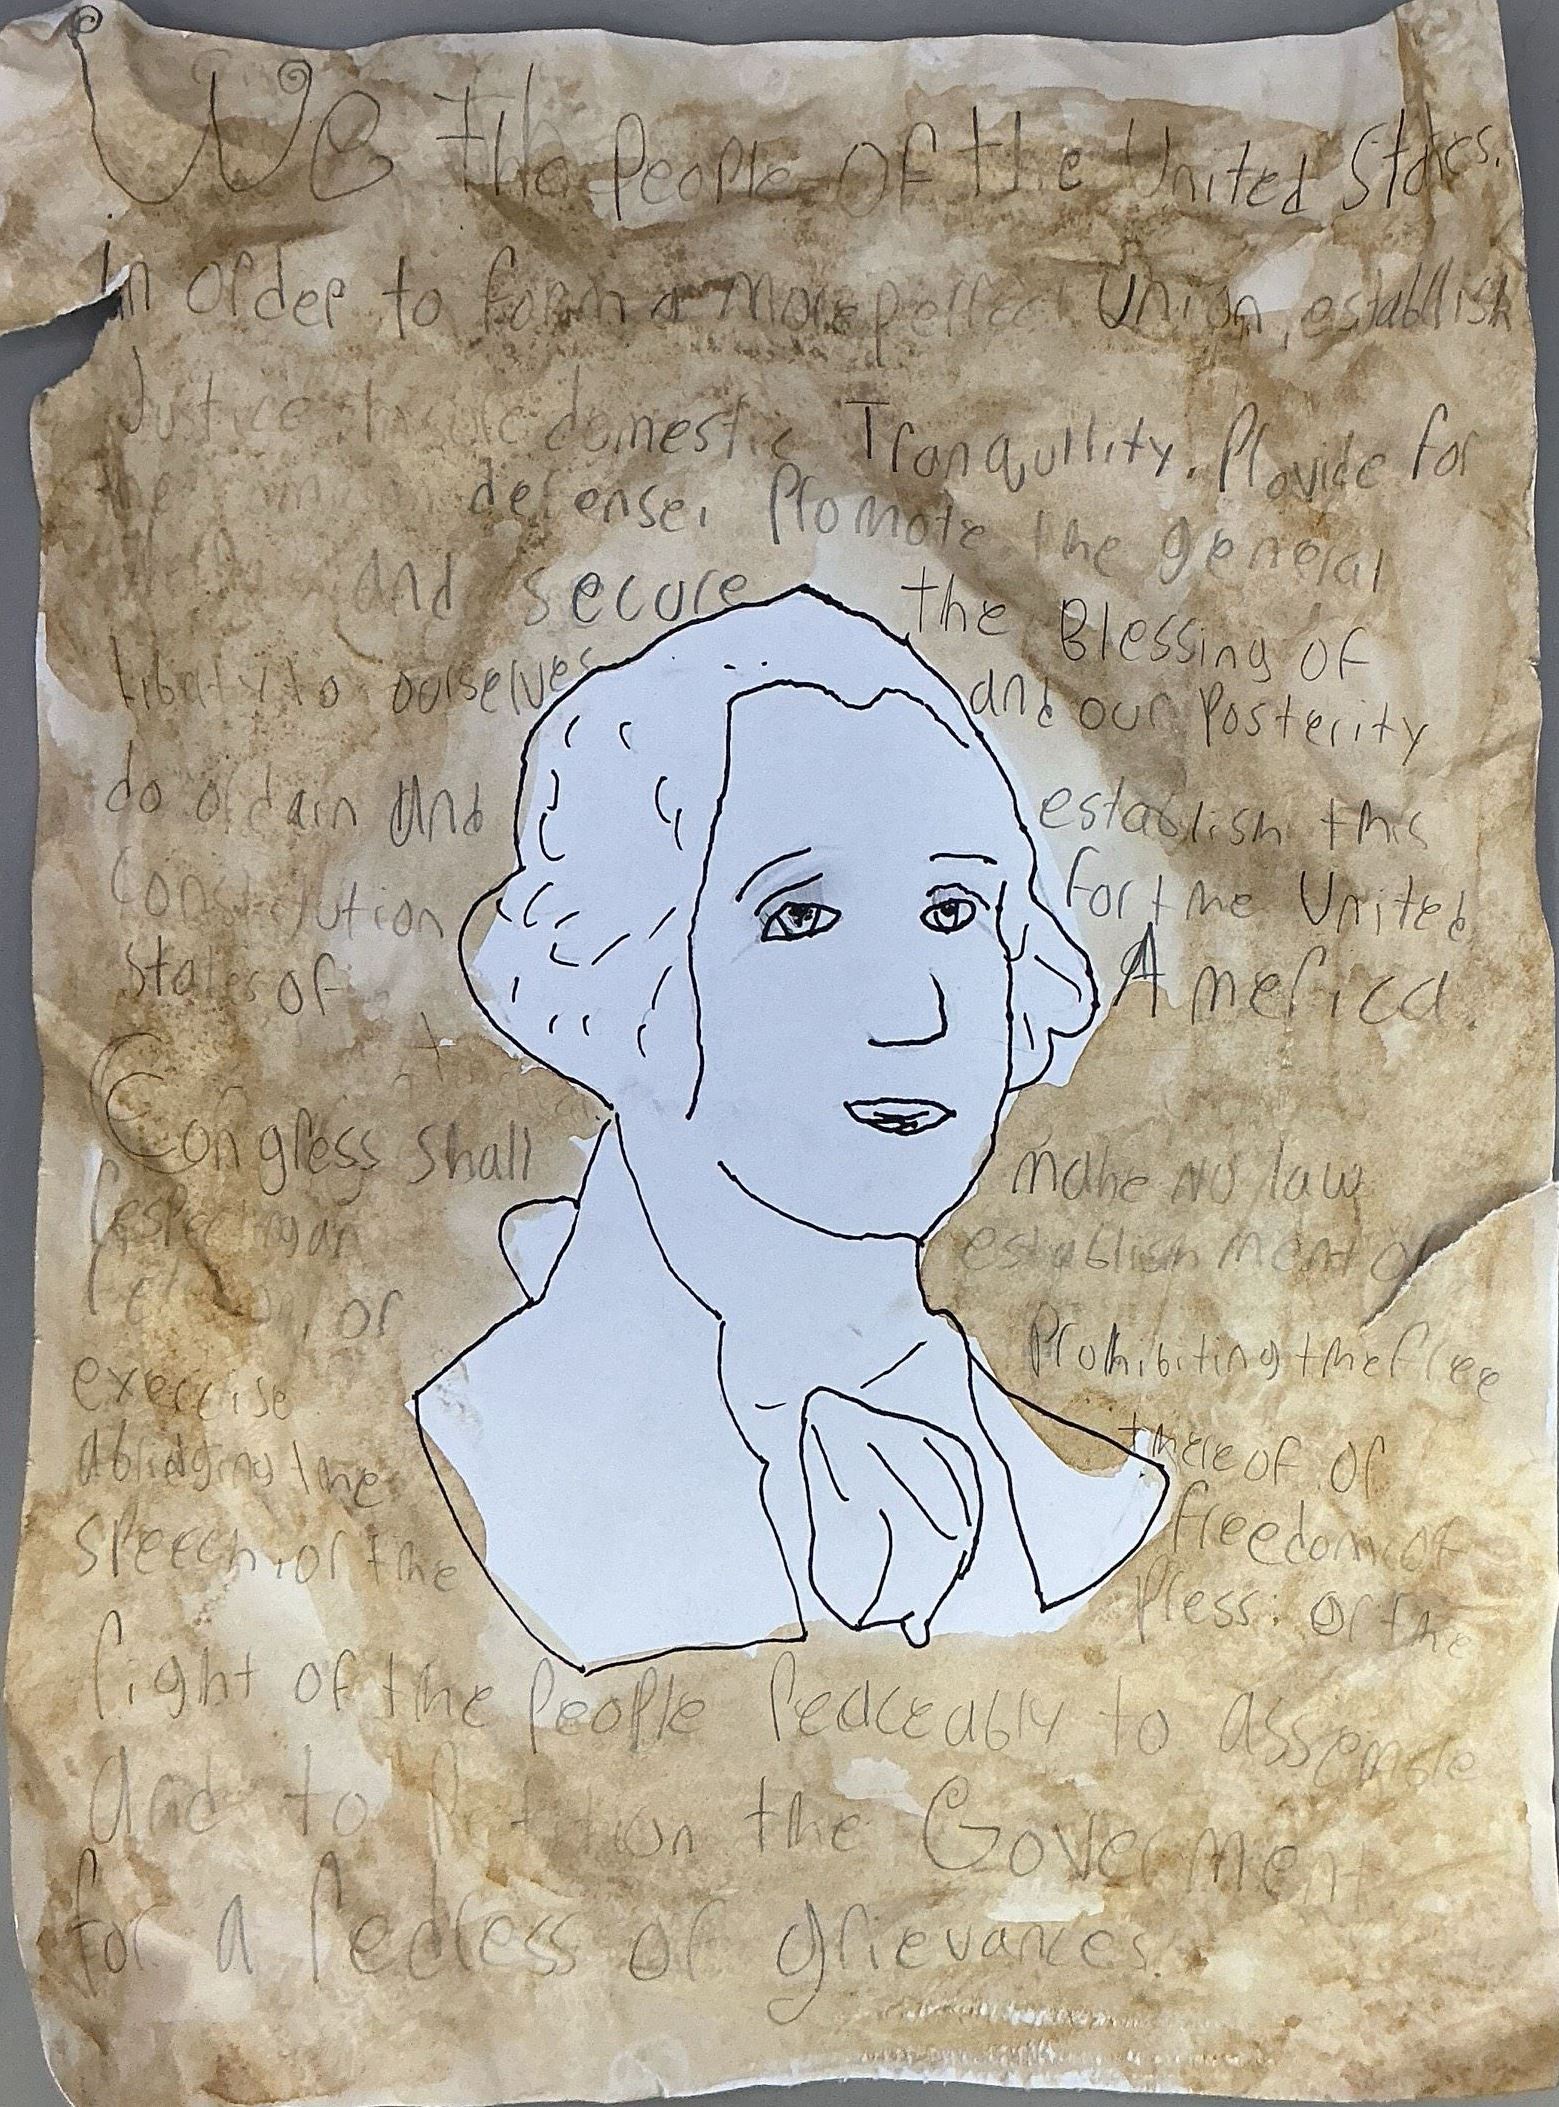 We the People of the United States.
In order to form a more perfect Union, establish
Justice domestic Tranquility. Provide for
the defense, Promote the general
and secure the Blessing of
liberty to ourselves and our Posterity
do ordain and establish this
Constitution for the United
States of America.
Congress shall make no law
respecting an establishment of
or Prohibiting the free
exercise thereof or
abridging the freedom of
speech, or the Press: or the
right of the People Peaceably to assemble
and to Petition the Goverment
for a redress of grievances.